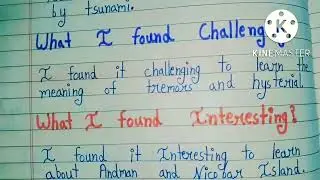 by tsunami.
What I found Challeng
KINEMASTER
I found it challenging to learn the
meaning of tremors and hysterial.
What I found Interesting?
I found it Interesting to learn
about Andman and Nicobar Island.